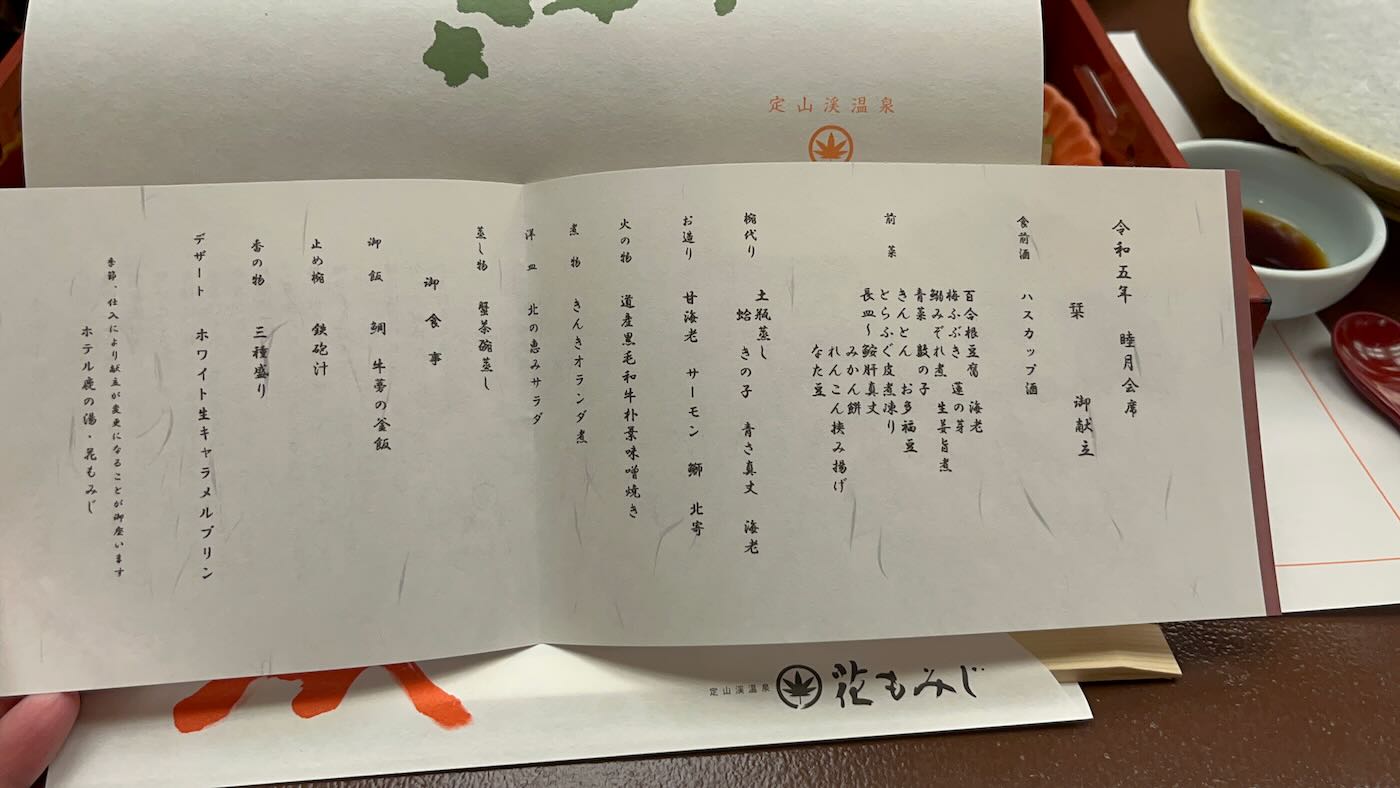 定山渓温泉
令和五年 睦月会席
栞 御献立
食前酒 ハスカップ酒
前菜
百合根豆腐 海老
梅ふぶき 蓮の芽
鰯みぞれ煮 生姜旨煮
青菜 数の子
きんとん お多福豆
とらふぐ皮煮凍り
長皿〜鮟肝真丈
みかん餅
れんこん挟み揚げ
なた豆
椀代り 土瓶蒸し
蛤 きの子 青さ真丈 海老
お造り 甘海老 サーモン 鰤 北寄
火の物 道産黒毛和牛朴葉味噌焼き
煮物 きんきオランダ煮
洋皿 北の恵みサラダ
蒸し物 蟹茶碗蒸し
御食事
御飯 鯛 牛蒡の釜飯
止め椀 鉄砲汁
香の物 三種盛り
デザート ホワイト生キャラメルプリン
季節、仕入により献立が変更になることが御座います
ホテル鹿の湯・花もみじ
定山渓温泉 花もみじ